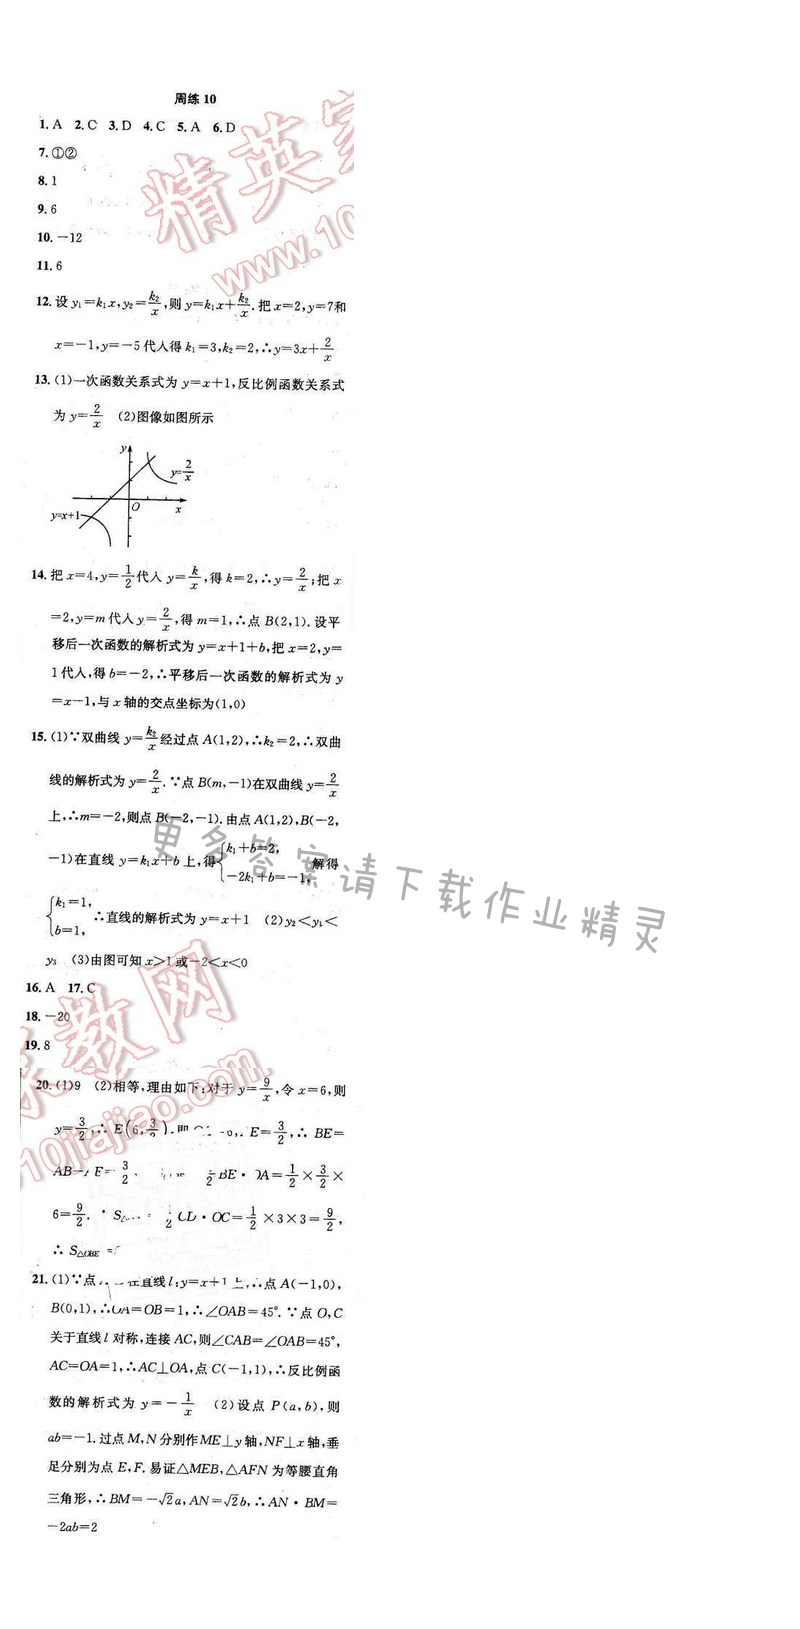 周练 10
1. A 2. C 3. D 4. C 5. A 6. D
7. ①②
8. 1
9. 6
10. －12
11. 6
12. 设 y₁＝k₁x, y₂＝k₂/x, 则 y＝k₁x＋k₂/x. 把 x＝2, y＝7和
x＝－1, y＝－5 代入得 k₁＝3, k₂＝2, ∴y＝3x＋2/x
13. (1)一次函数关系式为 y＝x＋1, 反比例函数关系式
为 y＝2/x (2)图像如图所示
y
y=2/x
O
x
y=x+1
14. 把 x＝4, y＝1/2 代入 y＝k/x, 得 k＝2, ∴y＝2/x; 把 x
＝2, y＝m 代入 y＝2/x, 得 m＝1, ∴点 B(2,1). 设平
移后一次函数的解析式为 y＝x＋1＋b, 把 x＝2, y＝
1代入, 得 b＝－2, ∴平移后一次函数的解析式为 y
＝x－1, 与 x 轴的交点坐标为(1,0)
15. (1)∵双曲线 y＝k₂/x 经过点 A(1,2), ∴k₂＝2, ∴双曲
线的解析式为 y＝2/x. ∵点 B(m,－1)在双曲线 y＝2/x
上, ∴m＝－2, 则点 B(－2,－1). 由点 A(1,2), B(－2,
－1)在直线 y＝k₁x＋b 上, 得{k₁＋b＝2, －2k₁＋b＝－1, 解得
{k₁＝1, b＝1, ∴直线的解析式为 y＝x＋1 (2)y₂＜y₁＜
y₃ (3)由图可知 x＞1 或－2＜x＜0
16. A 17. C
18. －20
19. 8
20. (1)9 (2)相等, 理由如下: 对于 y＝9/x, 令 x＝6, 则
y＝3/2, ∴E(6, 3/2). 即 E＝3/2, ∴BE＝
AB－ E＝3/2 /2 BE·OA＝1/2×3/2×
6＝9/2. S△ 1/2 CD·OC＝1/2×3×3＝9/2,
∴S△OBE＝
21. (1)∵点 在直线 l: y＝x＋1 上, ∴点 A(－1,0),
B(0,1), ∴OA＝OB＝1, ∴∠OAB＝45°. ∵点 O, C
关于直线 l 对称, 连接 AC, 则∠CAB＝∠OAB＝45°,
AC＝OA＝1, ∴AC⊥OA, 点 C(－1,1), ∴反比例函
数的解析式为 y＝－1/x (2)设点 P(a,b), 则
ab＝－1. 过点 M, N 分别作 ME⊥y 轴, NF⊥x 轴, 垂
足分别为点 E, F. 易证△MEB, △AFN 为等腰直角
三角形, ∴BM＝－√2a, AN＝√2b, ∴AN·BM＝
－2ab＝2
更多答案请下载作业精灵